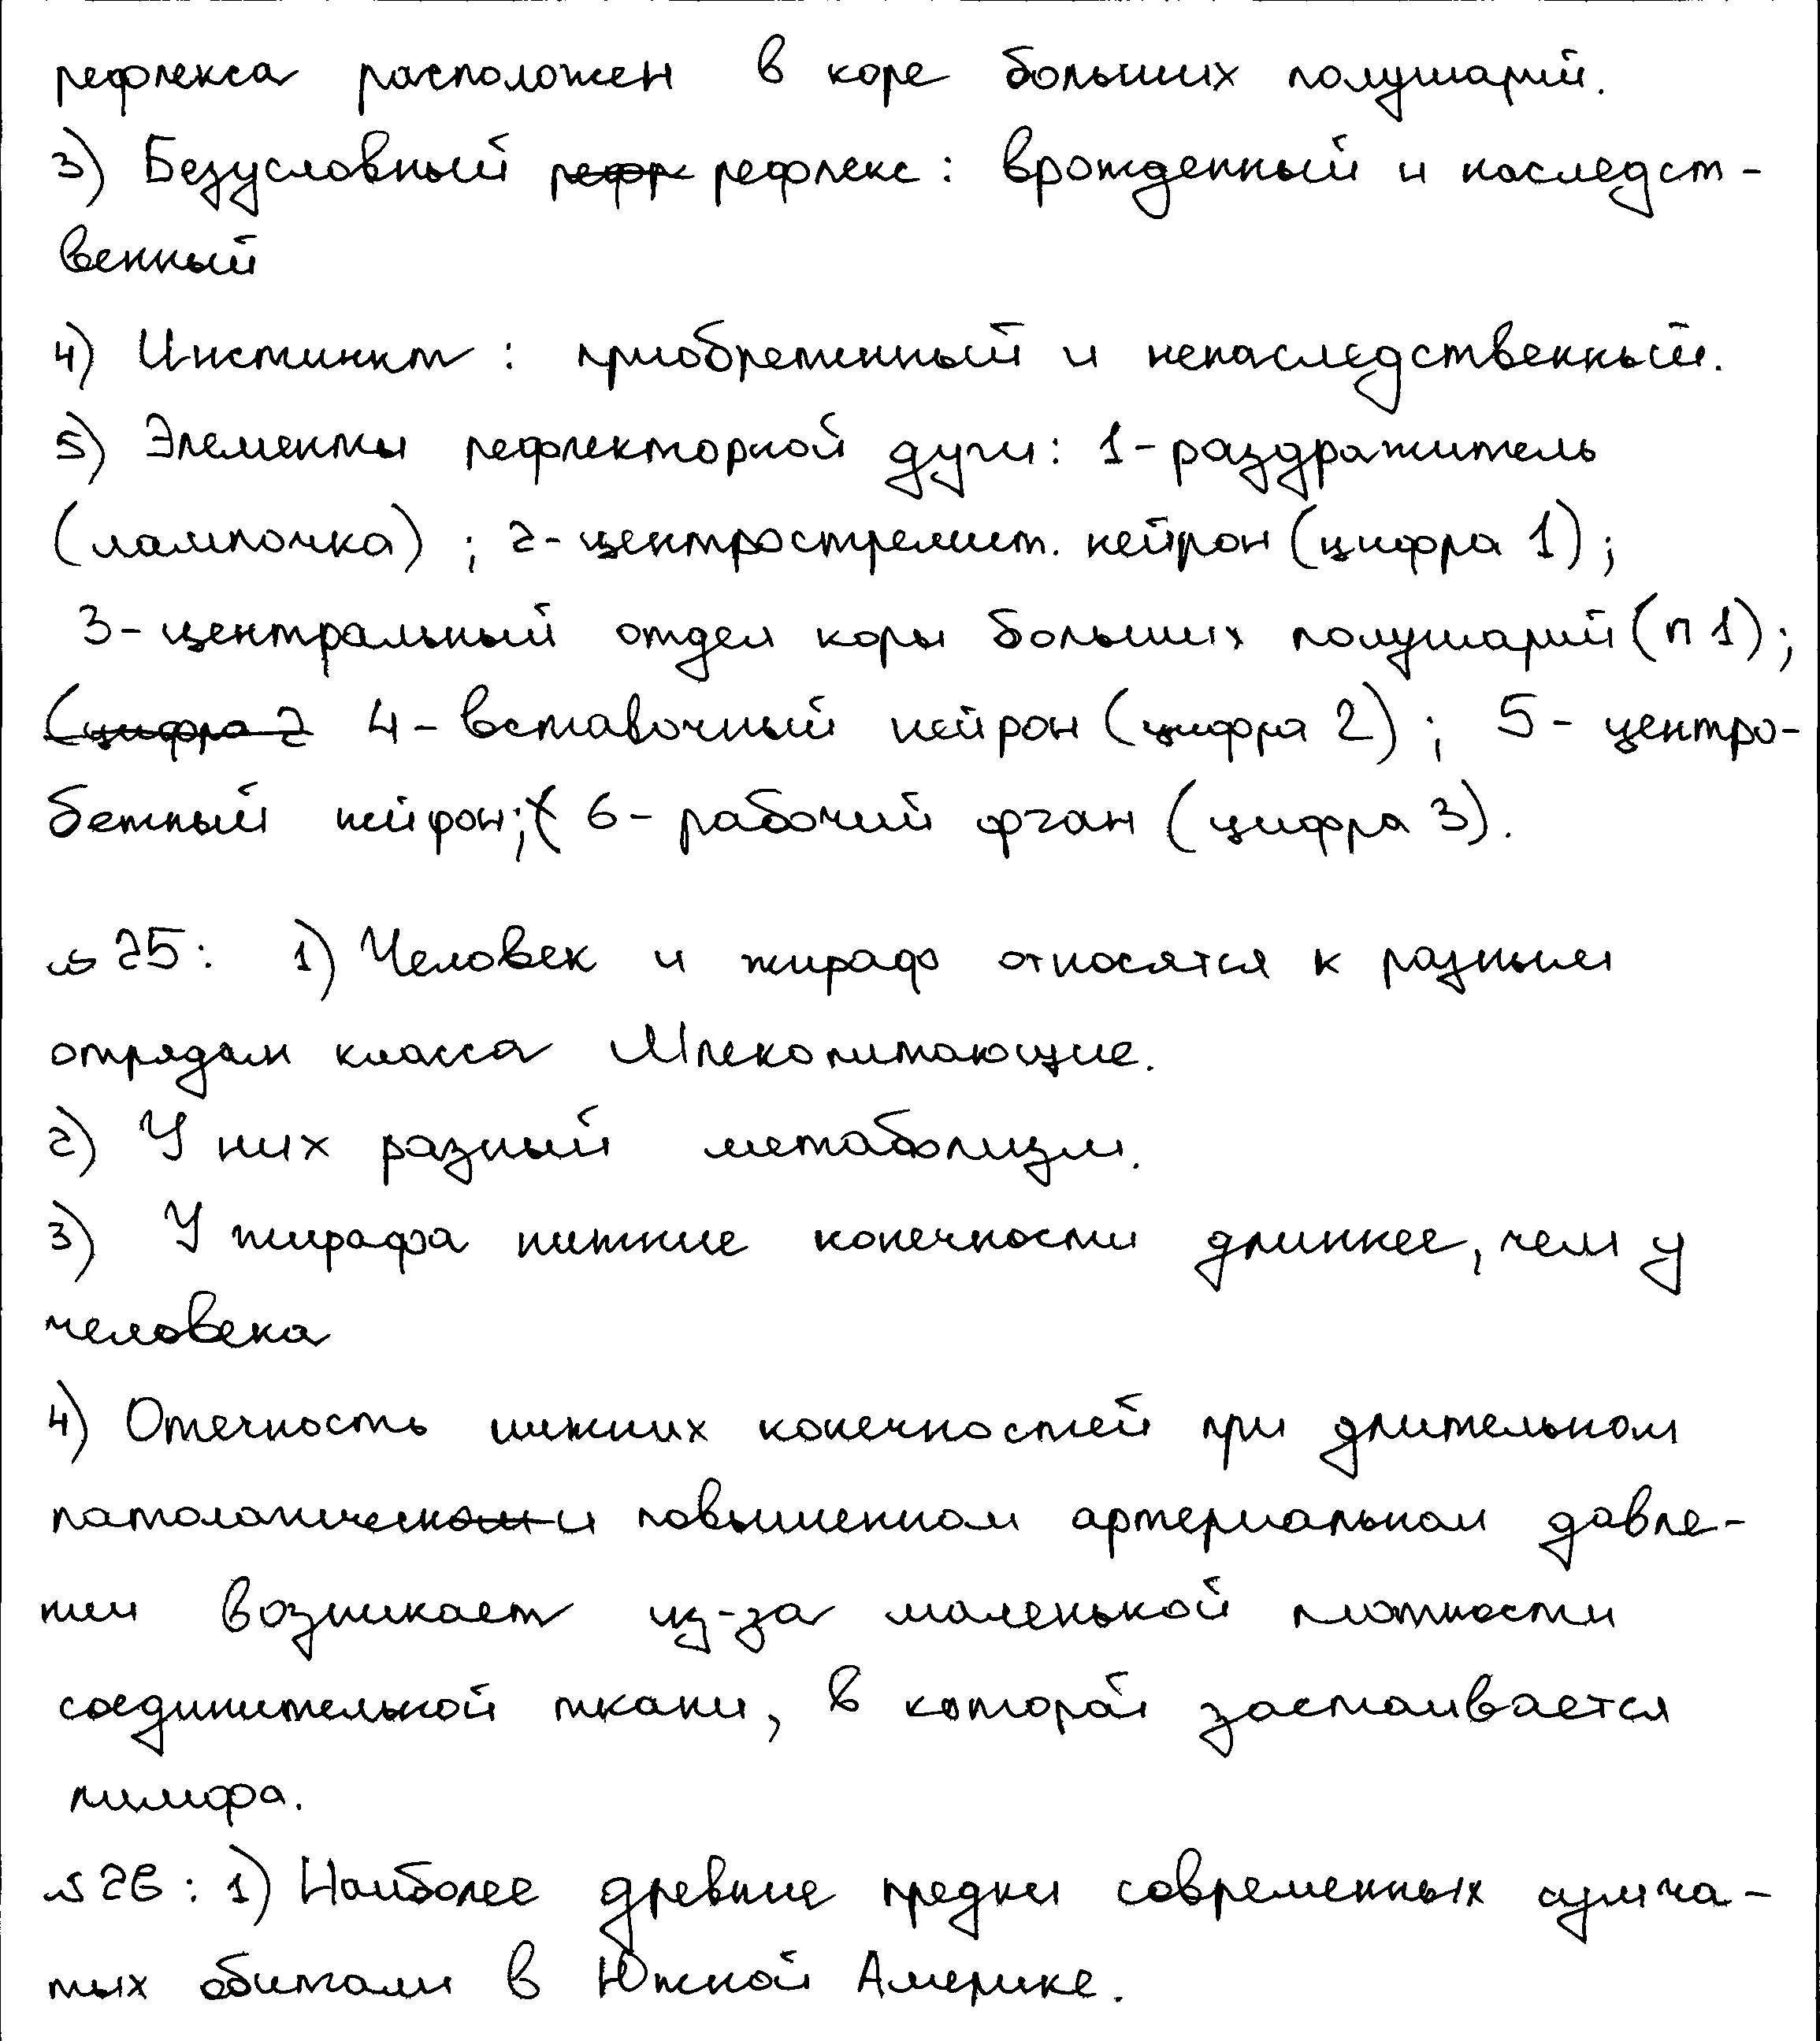 рефлекса расположен в коре больших полушарий.
3) Безусловный рефл рефлекс: врожденный и наследст-
венный
4) Инстинкт: приобретенный и ненаследственный.
5) Элементы рефлекторной дуги: 1-раздражитель
(лампочка); 2-центростремит. нейрон (цифра 1);
3-центральный отдел коры больших полушарий (п 1);
(цифра 2 4-вставочный нейрон (цифра 2); 5-центро-
бежный нейрон; 6-рабочий орган (цифра 3).
№25: 1) Человек и жираф относятся к разным
отрядам класса Млекопитающие.
2) У них разный метаболизм.
3) У жирафа нижние конечности длиннее, чем у
человека
4) Отечность нижних конечностей при длительном
патологически повышенном артериальном давле-
нии возникает из-за маленькой плотности
соединительной ткани, в которой застаивается
лимфа.
№26: 1) Наиболее древние предки современных сумча-
тых обитали в Южной Америке.